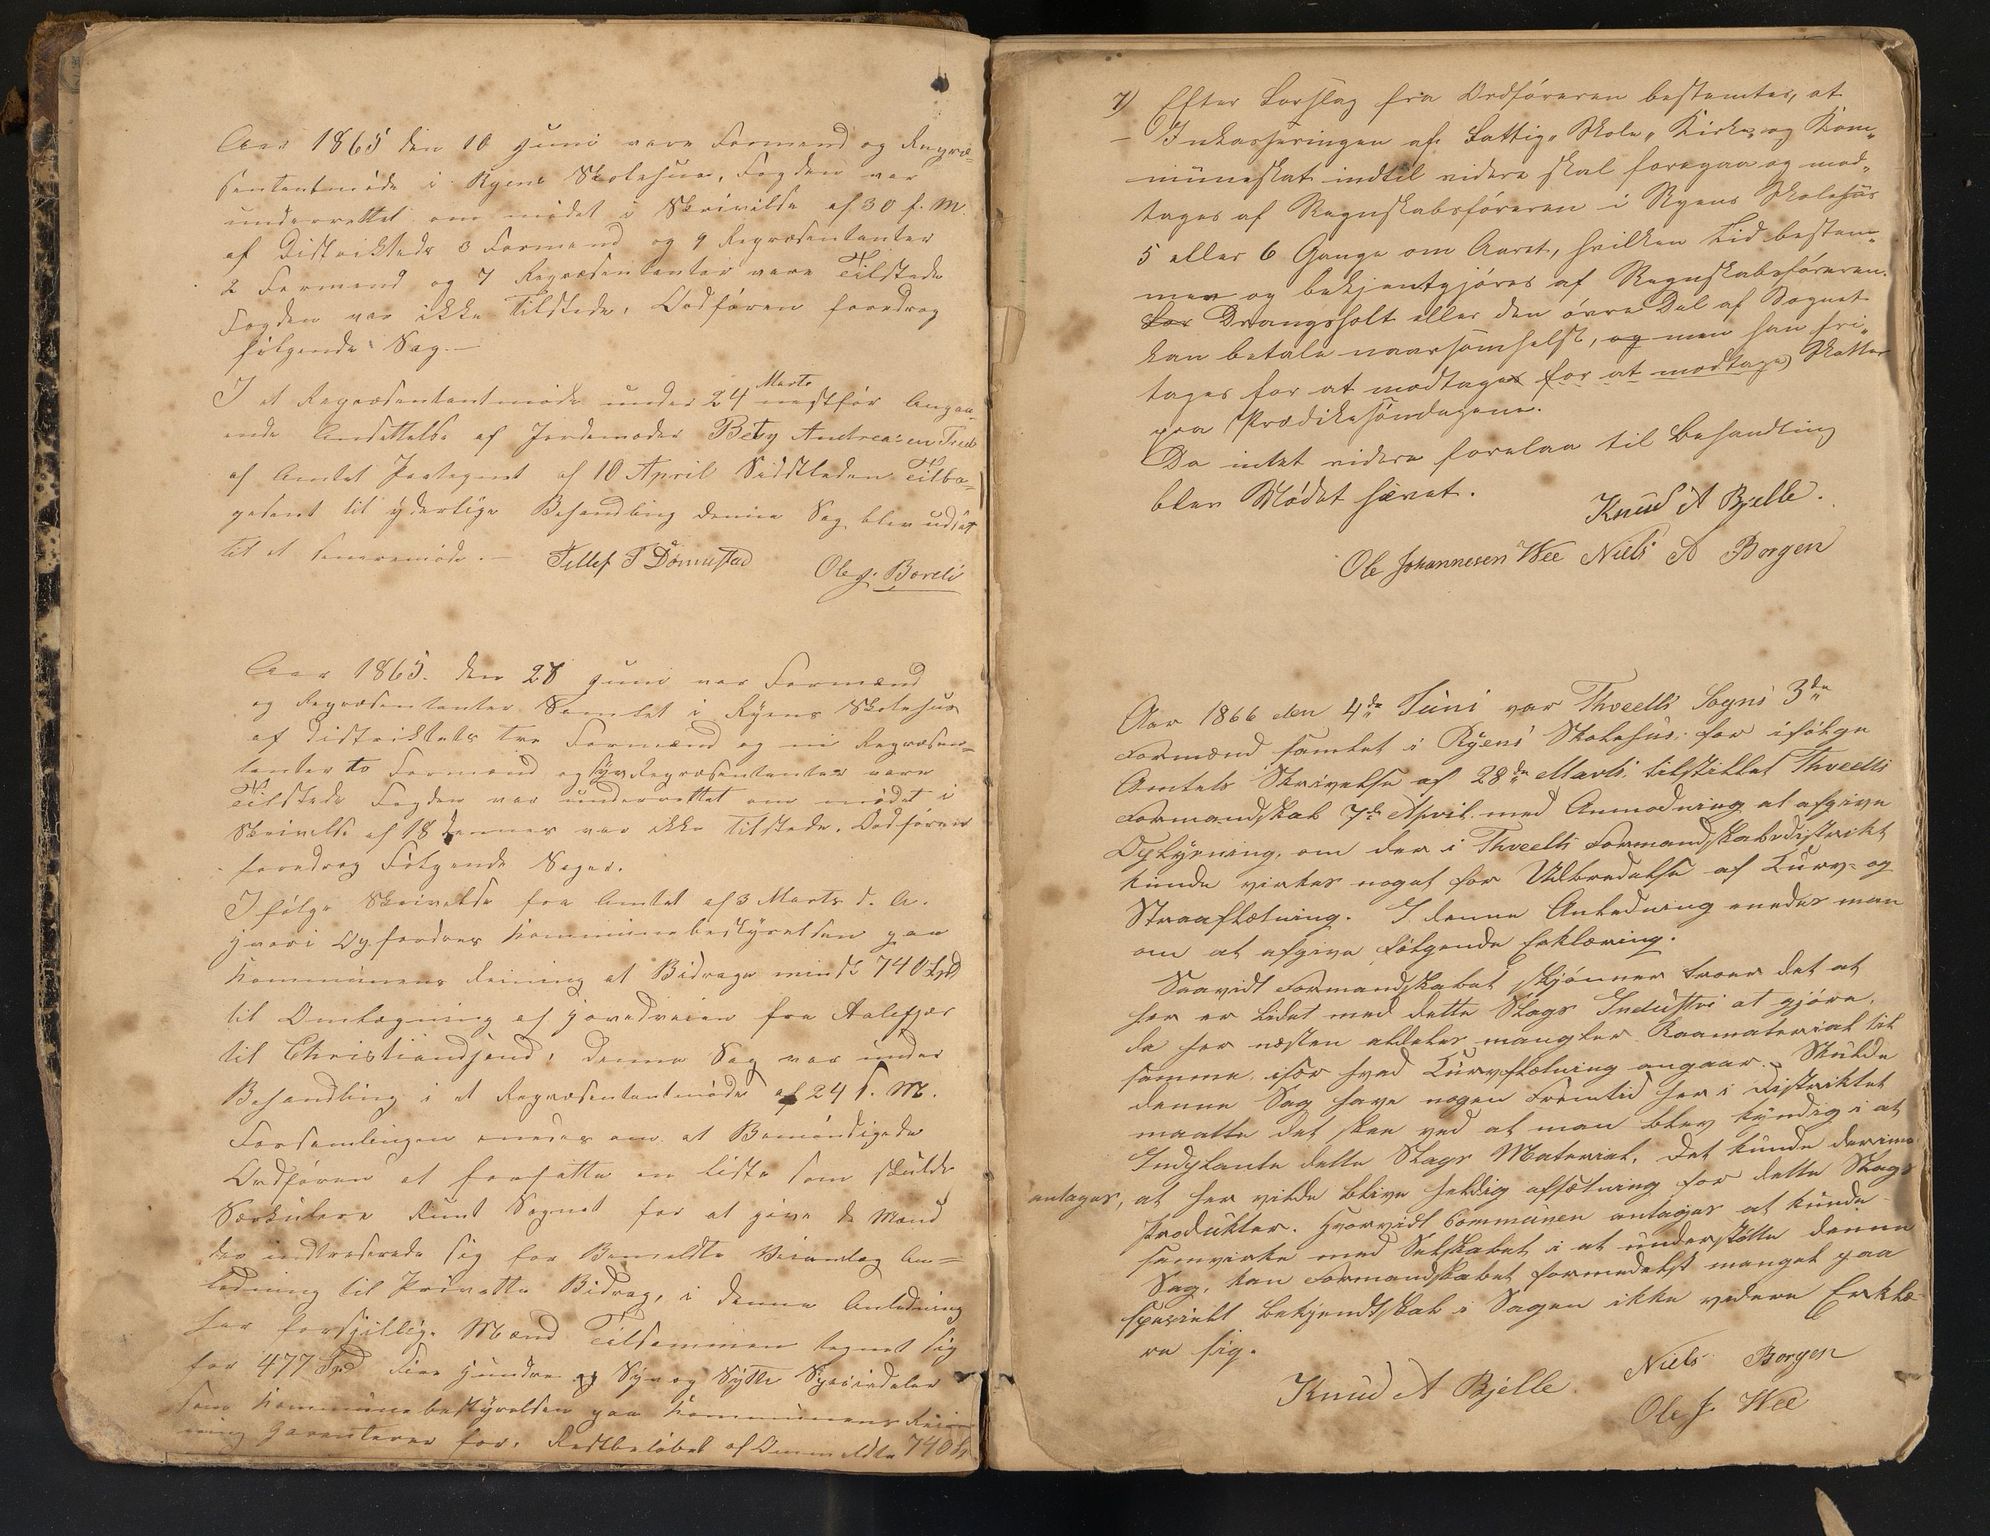 Aar 1865 den 10 Juni vare Formænd og Repræ-
sentantmøde i Ryens Skolehus, Fogden var
underrettet om mødet i Skrivelse af 30 f. M.
af Distriktets 3 Formænd og 9 Repræsentanter
2 Formænd og 7 Repræsentanter vare Tilstede
Fogden var ikke Tilstede, Ordføren foredrog
følgende Sag. —
I et Repræsentantmøde under 24 Marts næstfør Angaa-
ende Ansættelse af Jordemoder Betsy Andreasen
af Amtet Paategnet af 10 April Sidstleden Tilba-
gesent til yderlige Behandling denne Sag blev udsat
til et seneremøde. — Tellef T Dømmestad
Ole J. Boreli
Aar 1865. den 28 Juni var Formænd
og Repræsentanter Samlet i Ryens Skolehus
af Distriktets tre Formænd og ni Repræsen-
tanter to Formænd og syv Repræsentanter vare
Tilstede Fogden var underrettet om mødet i
Skrivelse af 18 dennes var ikke Tilstede. Ordføren
foredrog Følgende Sager.
I følge Skrivelse fra Amtet af 3 Marts d. A.
hvori Opfordres Kommunebestyrelsen paa
Kommunens Reining at Bidrage mindst 740 Spd
til Omlægning af Hovedveien fra Aalefjær
til Christiandsand, denne Sag var under
Behandling i et Repræsentantmøde af 24 f. M.
Forsamlingen enedes om at Bemøndigede
Ordføren at forfatte en liste som skulde
Særkulere Rundt Sognet for at give de Mænd
der indtreserede sig for Bemeldte Veianlæg An-
ledning til Privatte Bidrag, i denne Anledning
har forsjillige Mænd Tilsammen tegnet sig
for 477 Spd Fire Hundre og Syv og Sytti Speciedaler
som Kommunebestyrelsen paa Kommunens Rei-
ning Garenterer for. Restbeløbet af Ommeldte 740 Sp
7) Efter Forslag fra Ordføreren bestemtes, at
— Inkasseringen af Fattig- Skole- Kirke- og Kom-
muneskat indtil videre skal foregaa og mod-
tages af Regnskabsføreren i Ryens Skolehus
5 eller 6 Gange om Aaret, hvilken Tid bestem-
mes og bekjentgjøres af Regnskabsføreren.
For Drangsholt eller den øvre Del af Sognet
kan betale naarsomhelst, og men han fri-
tages for at modtages for at modtage) Skatter
paa Prædikesøndagene.
Da intet videre forelaa til Behandling
blev Mødet hævet.
Knud A Bjelle.
Ole Johannesen Wee Niels A Borgen
Aar 1866 den 4de Juni var Thveetts Sogns 3de
Formænd samlet i Ryens Skolehus, for ifølge
Amtets Skrivelse af 28de Marts, tilstillet Thveetts
Formandskab 7de April med Anmodning at afgive
Oplysning, om der i Thveetts Formandskabsdistrikt
kunde virkes noget for Udbredelse af Kurv- og
Straafletning. I denne Anledning enedes man
om at afgive følgende Erklæring.
Saavidt Formandskabet skjønner troer det at
her er lidet med dette Slags Industri at gjøre,
da her næsten aldeles mangler Raamaterial til
samme, især hvad Kurvfletning angaar. Skulde
denne Sag have nogen Fremtid her i Distriktet
maatte det skee ved at man blev kyndig i at
Indplante dette Slags Material. Det kunde derimo
antages, at her vilde blive heldig afsætning for dette Slags
Produkter. Hvorvidt Communen antages at kunde
samvirke med Selskabet i at understøtte denne
Sag, kan Formandskabet formedelst manget paa
specielt bekjendtskab i Sagen ikke videre Erklæ-
re sig.
Knud A Bjelle. Niels Borgen
Ole J. Wee